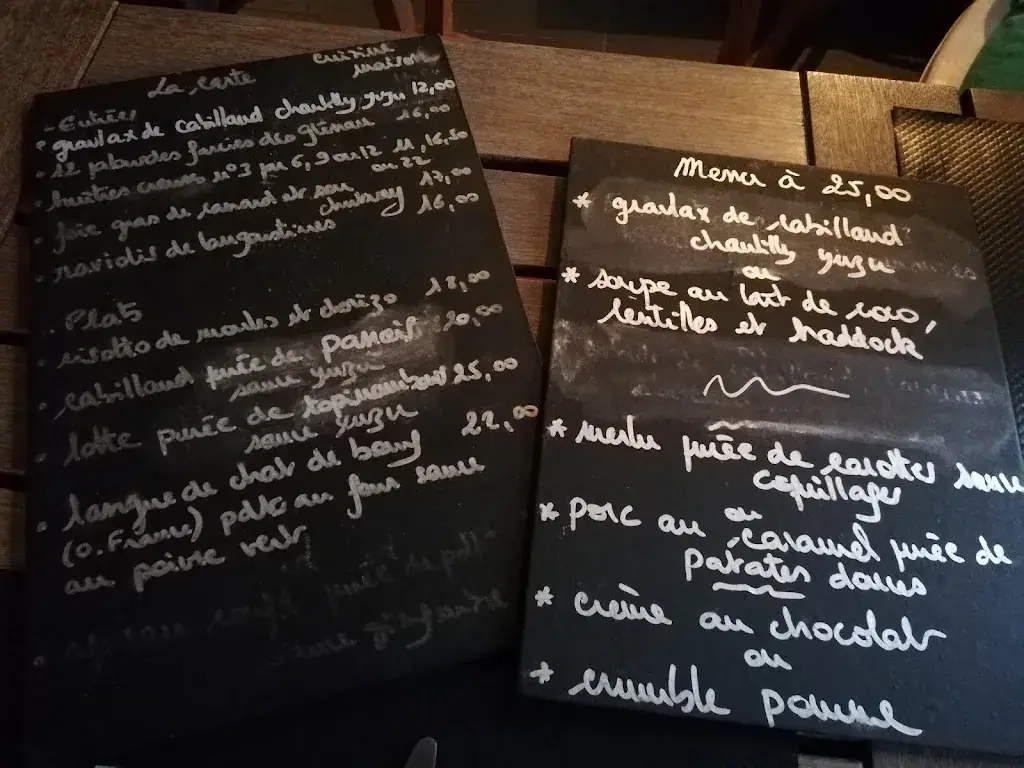 La carte
cuisine
maison
- Entrées
• gravlax de cabillaud chantilly yuzu 12,00
• 12 palourdes farcies des glénan 16,00
• huîtres creuses n°3 par 6, 9 ou 12 11, 16,50
ou 22
• foie gras de canard et son 17,00
chutney
• raviolis de langoustines 16,00
. Plats
• risotto de moules et chorizo 18,00
• cabillaud purée de panais 20,00
sauce yuzu
• lotte purée de topinambour 25,00
sauce yuzu
• langue de chat de bœuf 22,00
(O. France) pdt au four sauce
au poivre vert
purée de
sauce
Menu à 25,00
* gravlax de cabillaud
chantilly yuzu
ou
* soupe au lait de coco,
lentilles et haddock
* merlu purée de carottes sauce
coquillages
ou
* porc au caramel purée de
patates douces
* crème au chocolat
ou
* crumble pomme